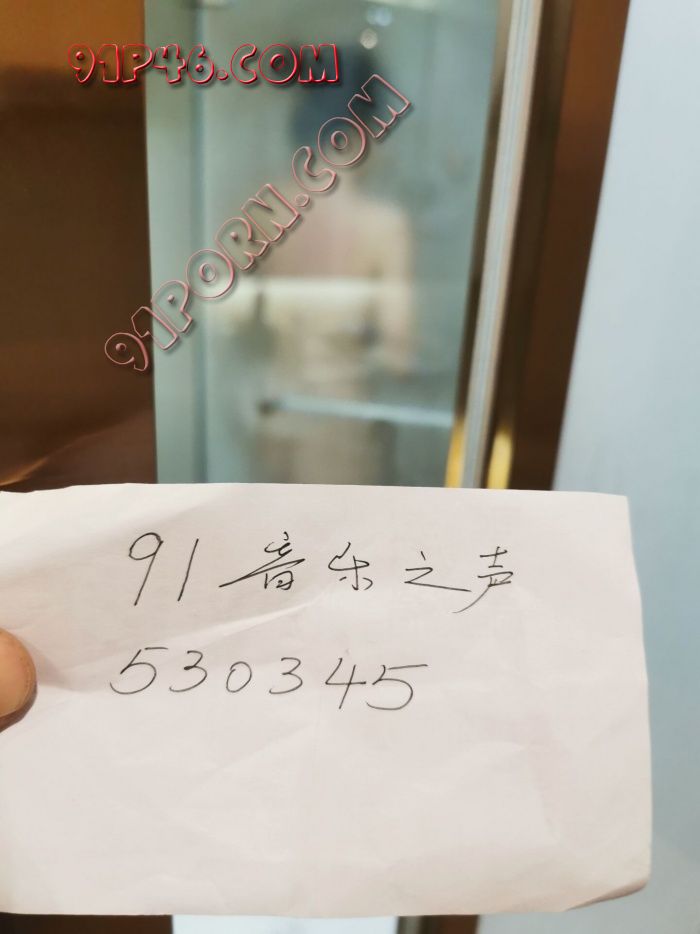 91P46.COM
91PORN.COM
91音乐之声
530345